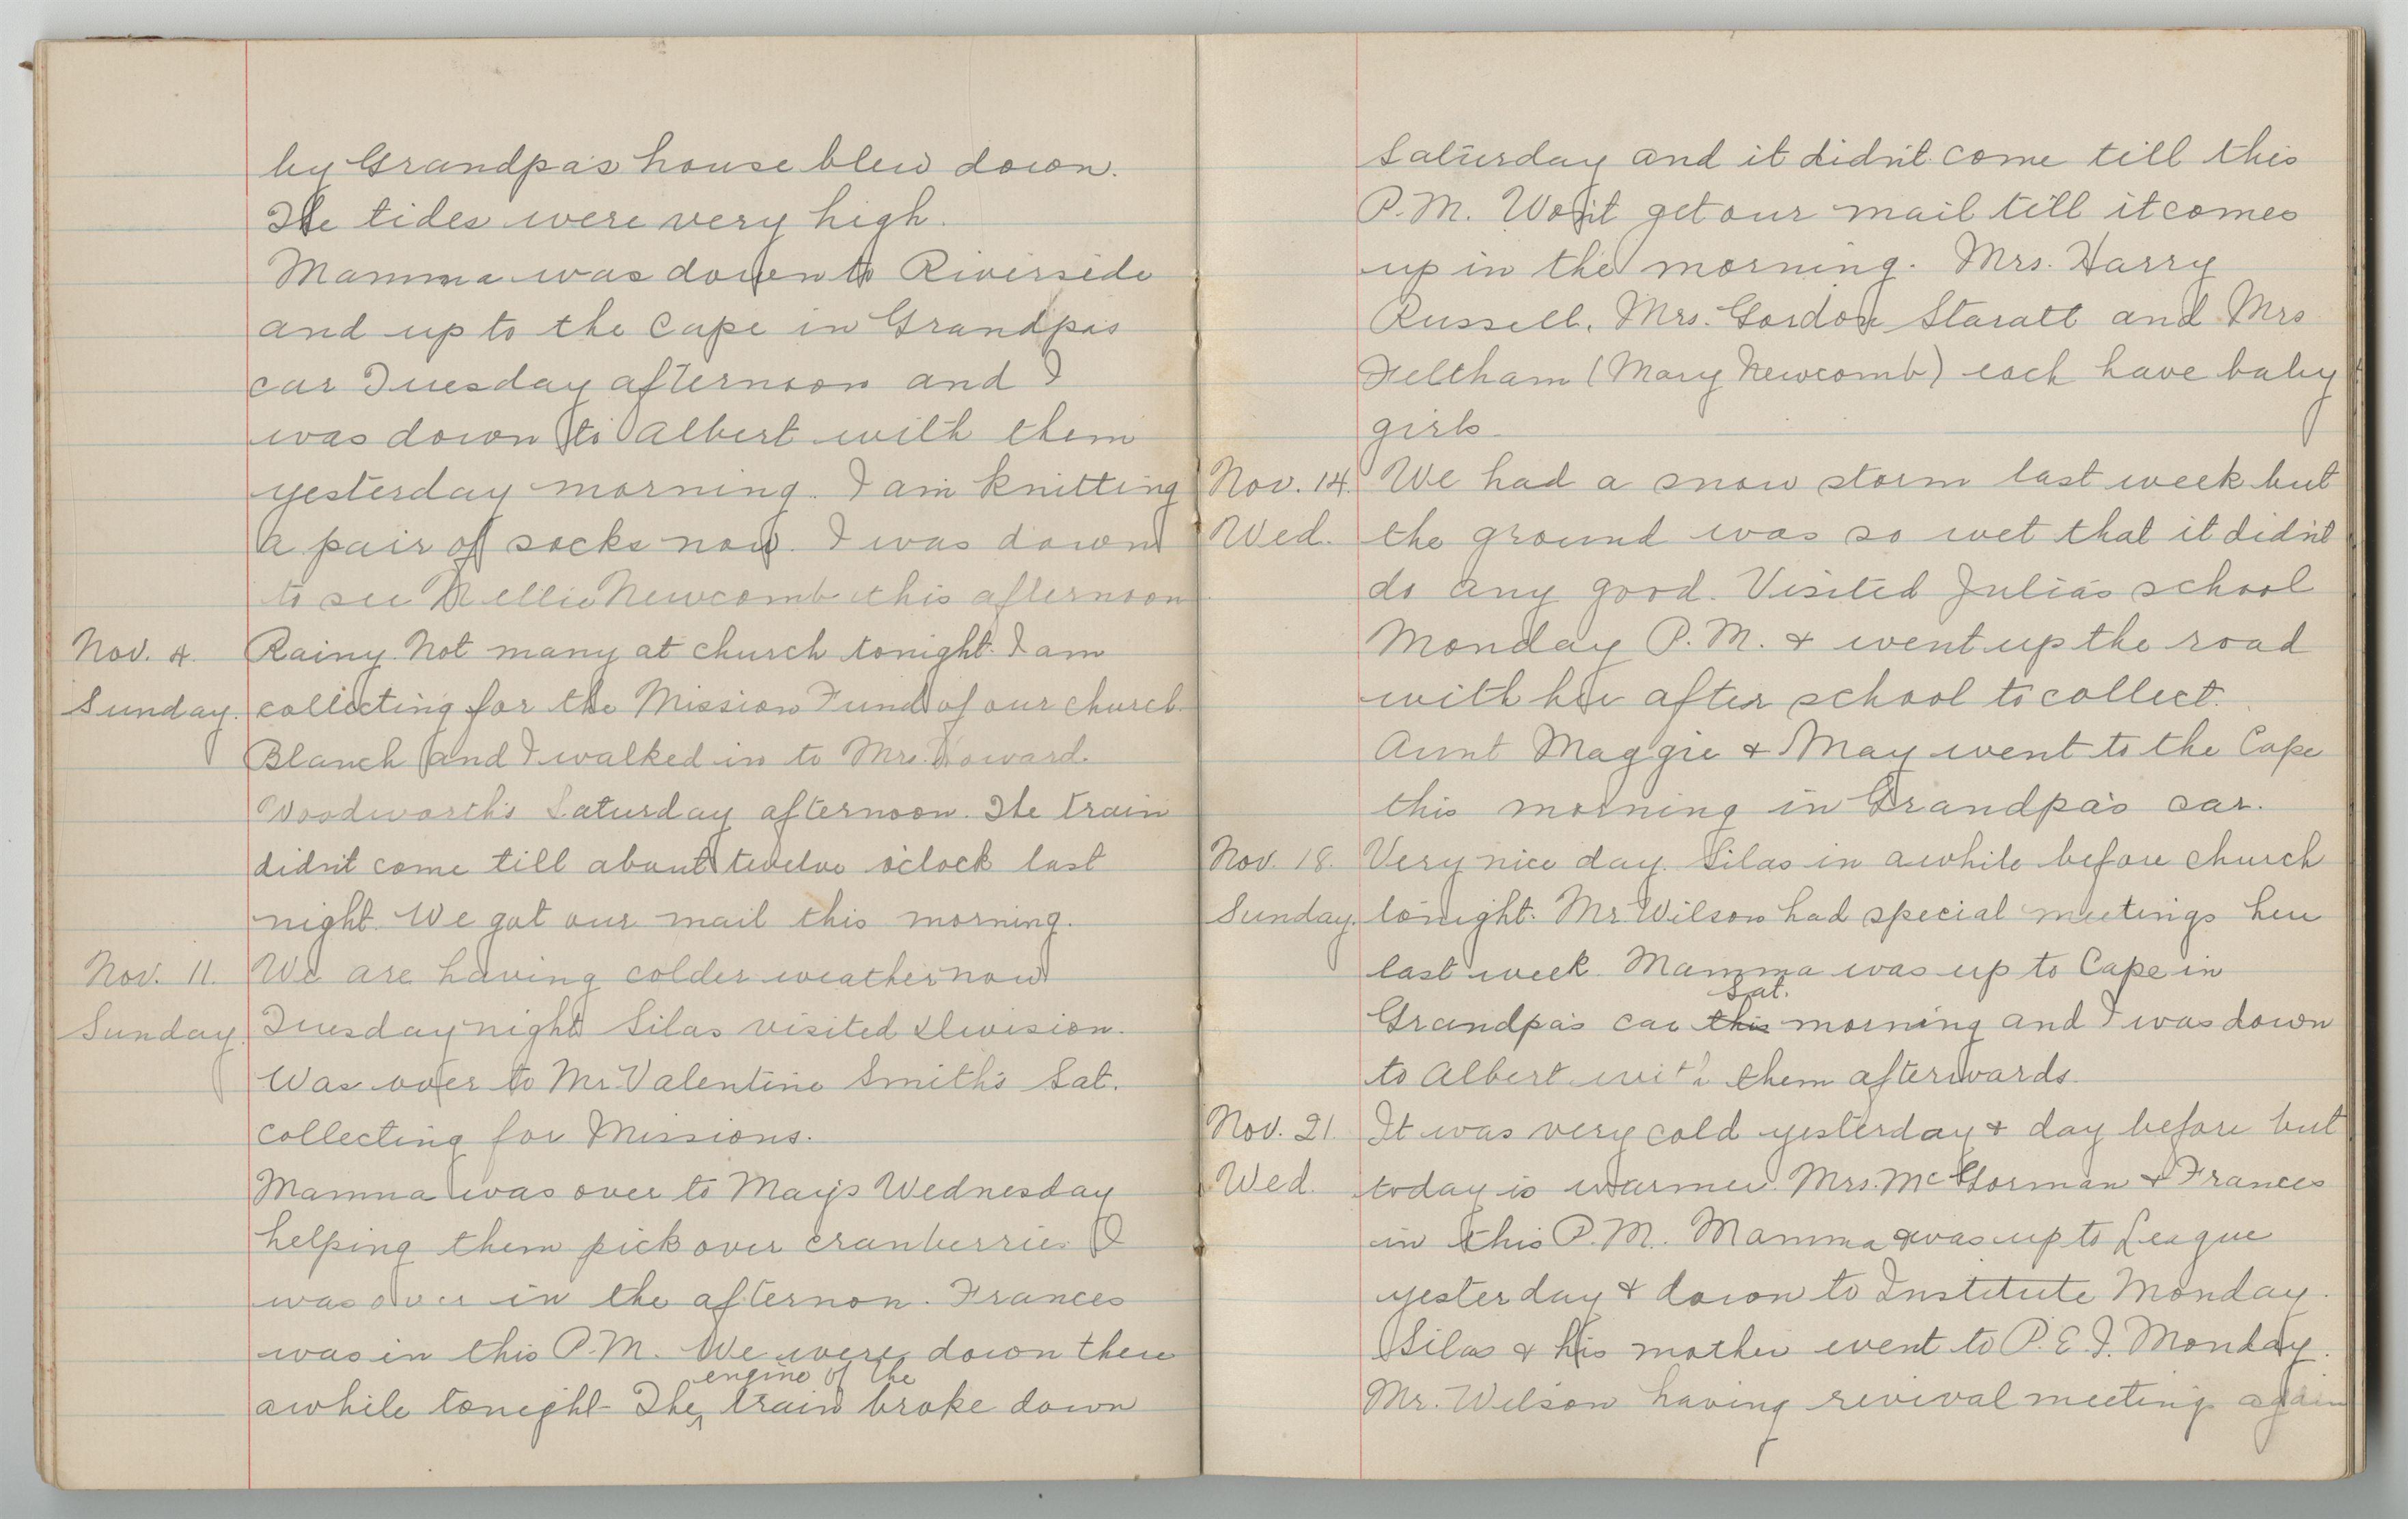 by Grandpa's house blew down.
The tides were very high.
Mamma was down to Riverside
and up to the Cape in Grandpa's
car Tuesday afternoon and I
was down to Albert with them
yesterday morning. I am knitting
a pair of socks now. I was down
to see Nellie Newcomb this afternoon
Nov. 4. Rainy. Not many at church tonight. I am
Sunday. collecting for the Mission Fund of our church.
Blanch and I walked in to Mrs. Howard.
Woodworth's Saturday afternoon. The train
didn't come till about twelve o'clock last
night. We got our mail this morning.
Nov. 11. We are having colder weather now
Sunday. Tuesday night Silas visited Division.
Was over to Mr Valentine Smith's Sat.
collecting for Missions.
Mamma was over to May's Wednesday
helping them pick over cranberries. I
was over in the afternon. Frances
was in this P.M. We were down there
engine of the
awhile tonight- The train broke down
Saturday and it didn't come till this
P.M. Won't get our mail till it comes
up in the morning. Mrs. Harry
Russell, Mrs. Gordon Staratt and Mrs
Feltham (Mary Newcomb) each have baby
girls.
Nov. 14. We had a snow storm last week but
Wed. the ground was so wet that it didn't
do any good. Visited Julia's school
Monday P.M. & went up the road
with her after school to collect.
Aunt Maggie & May went to the Cape
this morning in Grandpa's car.
Nov. 18. Very nice day. Silas in awhile before church
Sunday. tonight. Mr Wilson had special meetings here
last week. Mamma was up to Cape in
Sat.
Grandpa's car this morning and I was down
to Albert with them afterwards.
Nov. 21. It was very cold yesterday & day before but
Wed. today is warmer. Mrs. McGorman & Frances
in this P.M. Mamma was up to League
yesterday & down to Institute Monday.
Silas & his mother went to P.E.I. Monday.
Mr. Wilson having revival meeting again